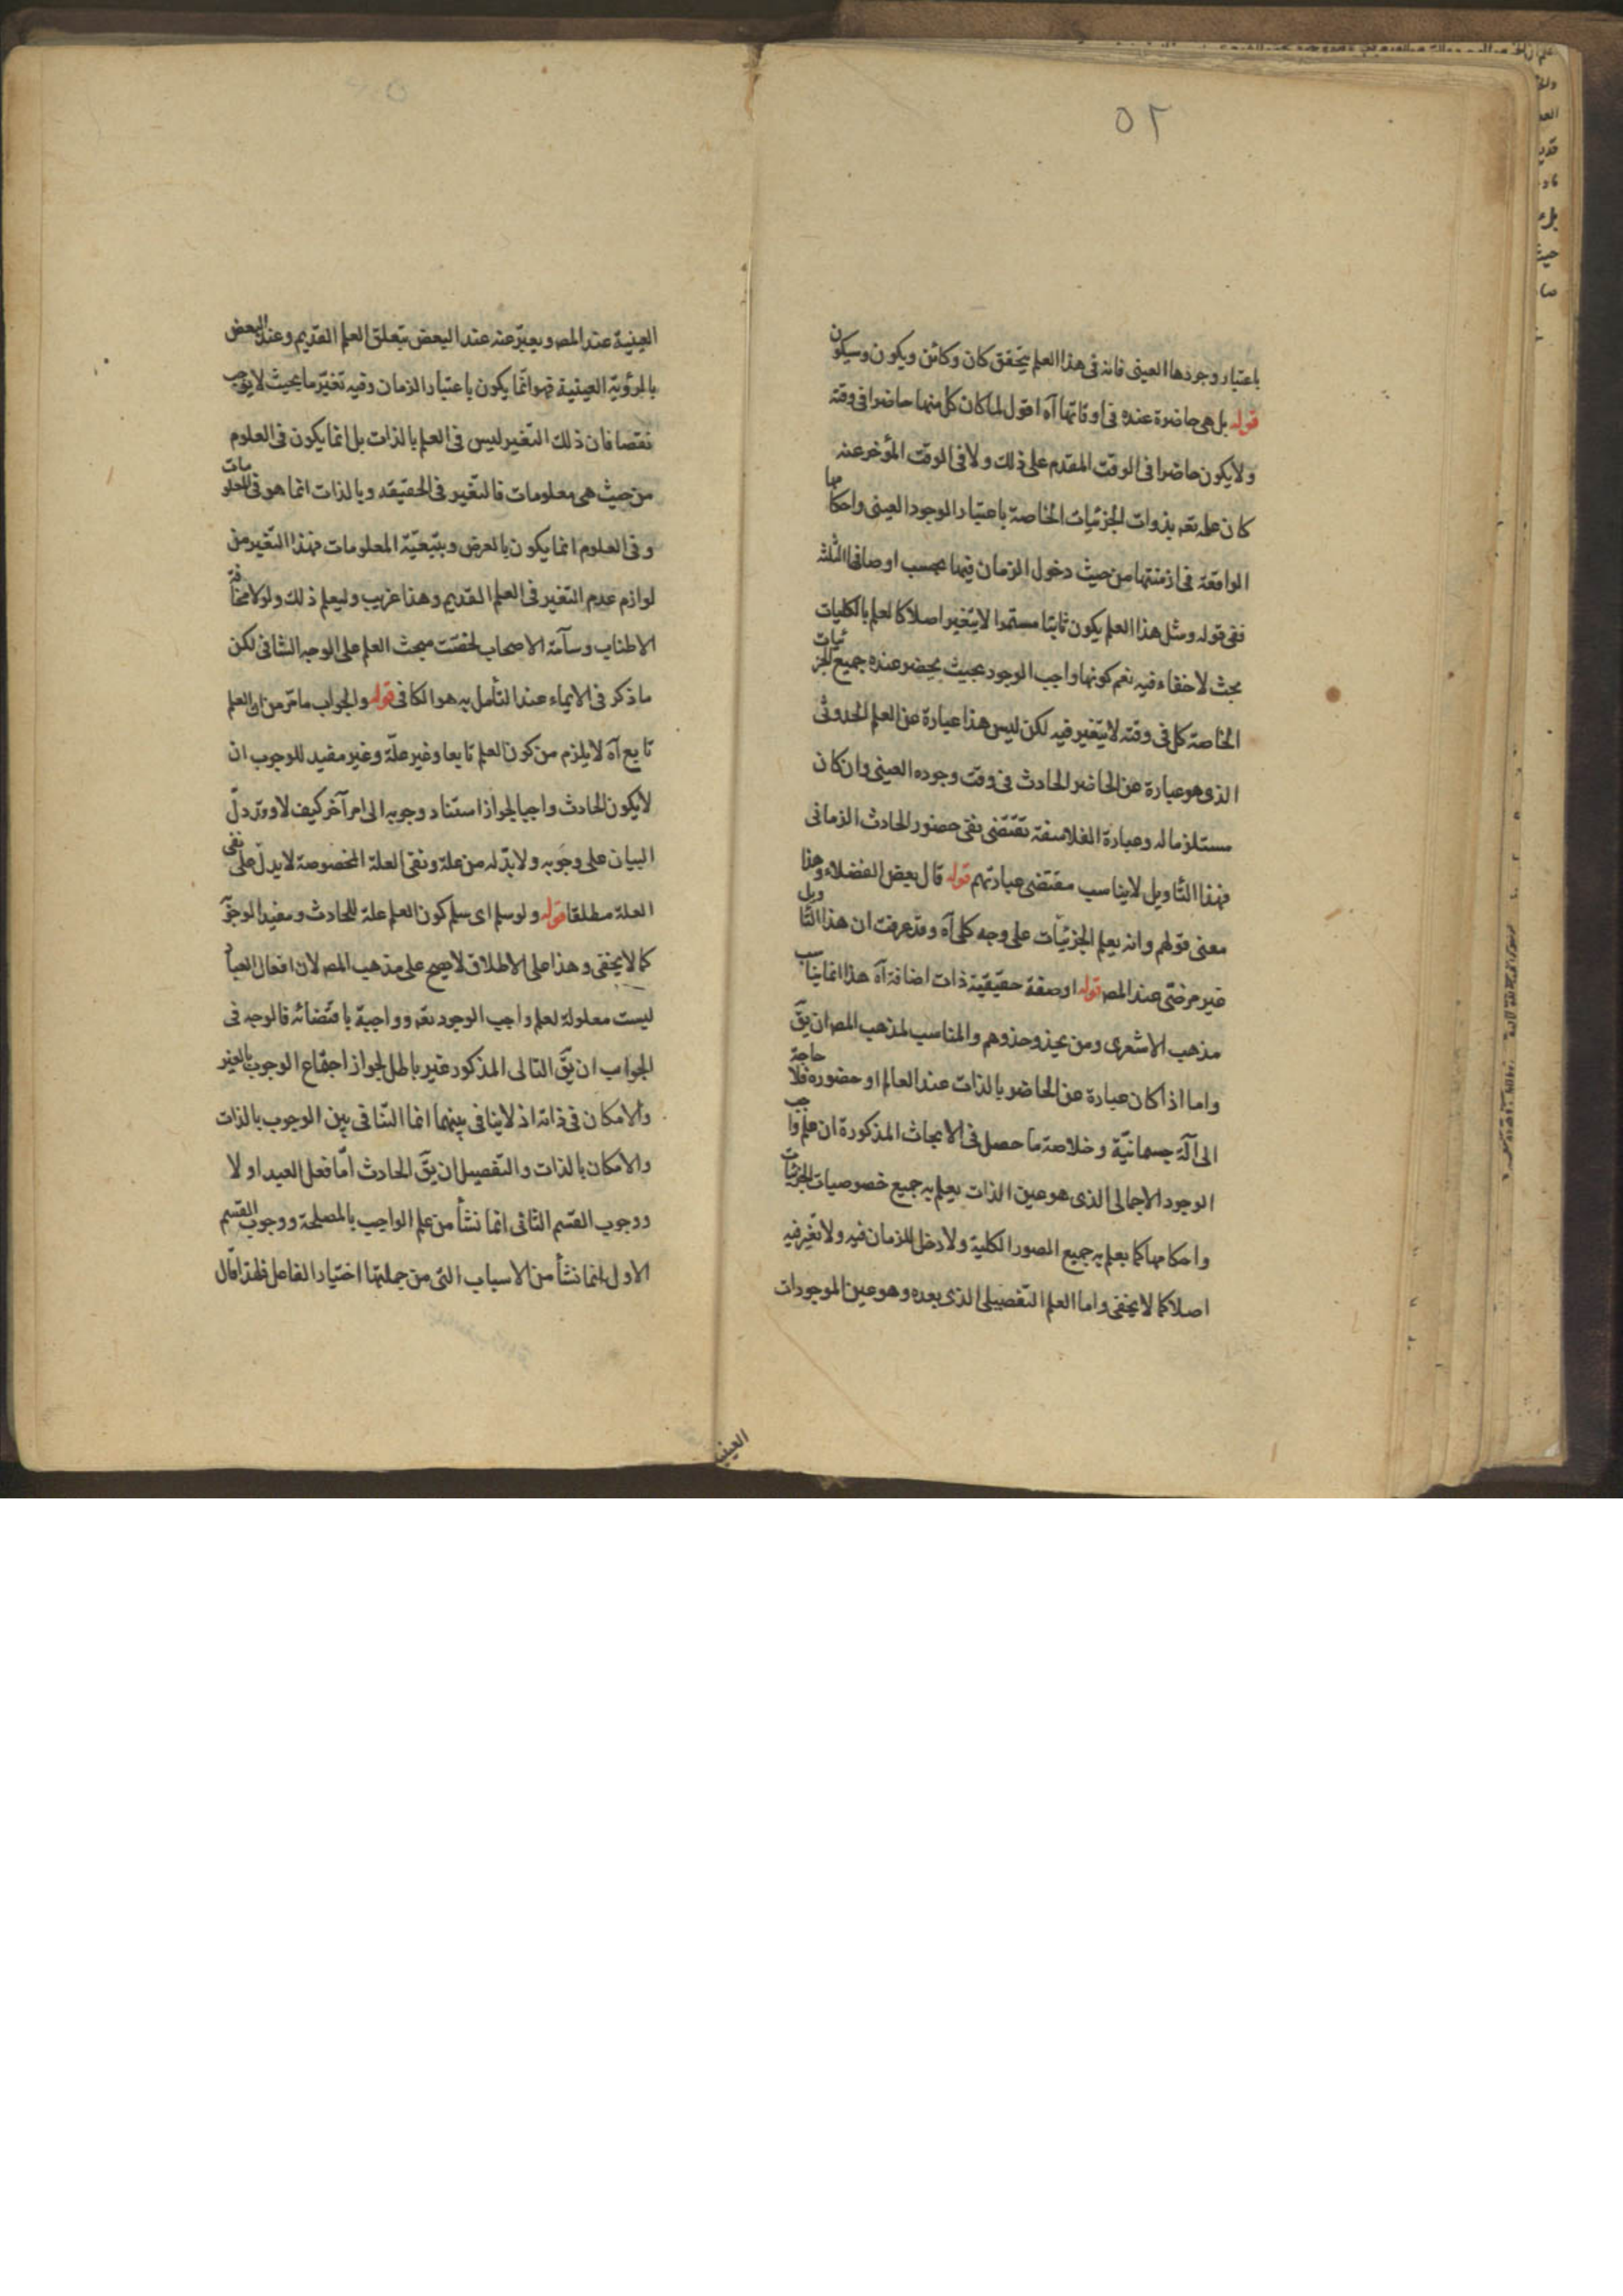 ٥٢
باعتبار وجودها العينى فانه فى هذا العلم يتحقق كان وكائن ويكون وسيكون
قوله بل هى حاضرة عنده فى اوقاتها آه اقول لما كان كل منها حاضرا فى وقته
ولا يكون حاضرا فى الوقت المقدم على ذلك ولا فى الوقت المؤخر عنه
كان علمه تعم بذوات الجزئيات الخاصة باعتبار الموجود العينى واحكامها
الواقعة فى ازمنتها من حيث دخول الزمان فيها بحسب اوصافها الثلثه
ففى قوله ومثل هذا العلم يكون ثابتا مستمرا لا يتغير اصلا كالعلم بالكليات
بحث لا خفاء فيه نعم كونها واجب الوجود بحيث يحضر عنده جميع الجزئيات
الخاصة كل فى وقته لا يتغير فيه لكن ليس هذا عبارة عن العلم الحدوثى
الذى هو عبارة عن الحاضر الحادث فى وقت وجوده العينى وان كان
مستلزما له وعبارة الفلاسفة تقتضى نفى حضور الحادث الزمانى
فهذا التاويل لا يناسب مقتضى عبادتهم قوله قال بعض الفضلاء وهذا
معنى قولهم وانه يعلم الجزئيات على وجه كلى آه وقد عرفت ان هذا التاويل
غير مرضى عند المص قوله او صفة حقيقية ذات اضافة آه هذا انما يناسب
مذهب الاشعرى ومن يحذو حذوهم والمناسب لمذهب المص ان يق
واما اذا كان عبارة عن الحاضر بالذات عند العالم او حضوره فلا حاجة
الى آلة جسمانيّة وخلاصة ما حصل فى الابحاث المذكورة ان علم واجب
الوجود الاجمالى الذى هو عين الذات يعلم به جميع خصوصيات الجزئيات
واحكامها كما يعلم به جميع الصور الكلية ولا دخل للزمان فيه ولا تغير فيه
اصلا كما لا يخفى واما العلم التفصيلى الذى بعده وهو عين الموجودات
العينية
العينية عند المص ويعبّر عنه عند البعض بتعلق العلم القديم وعند البعض
بالرؤية العينية فهو انّما يكون باعتبار الزمان وفيه تغيّر ما بحيث لا يوجب
نقصا فان ذلك التغير ليس فى العلم بالذات بل انما يكون فى العلوم
من حيث هى معلومات فالتغير فى الحقيقه وبالذات انما هو فى المعلومات
وفى العلوم انما يكون بالعرض وبتبعيّة المعلومات فهذا التغير من
لوازم عدم التغير فى العلم القديم وهذا غريب وليعلم ذلك ولولا مخافة
الاطناب وسآمة الاصحاب لخصت مبحث العلم على الوجه الشافى لكن
ما ذكر فى الايماء عند التأمل به هو الكافى قوله والجواب ما مرّ من ان العلم
تابع آه لا يلزم من كون العلم تابعا وغير علّة وغير مفيد للوجوب ان
لا يكون الحادث واجبا لجواز استناد وجوبه الى امر آخر كيف لا وقد دلّ
البيان على وجوبه ولا بدّ له من علة ونفى العلة المخصوصة لا يدلّ على نفى
العلة مطلقا قوله ولو سلم اى سلم كون العلم علة للحادث ومفيدا لوجو
كما لا يخفى وهذا على الاطلاق لا يصح على مذهب المص لان افعال العباد
ليست معلولة لعلم واجب الوجود تعم وواجبة باقتضائه فالوجه فى
الجواب ان يقّ التالى المذكور غير باطل لجواز اجتماع الوجوب بالغير
والامكان فى ذاته اذ لا ينافى بينهما انما التنافى بين الوجوب بالذات
والامكان بالذات والتفصيل ان يقّ الحادث امّا فعل العبد او لا
ووجوب القسم الثانى انما نشأ من علم الواجب بالمصلحة ووجوب القسم
الاول انما نشأ من الاسباب التى من جملتها اختيار الفاعل فلهذا قال